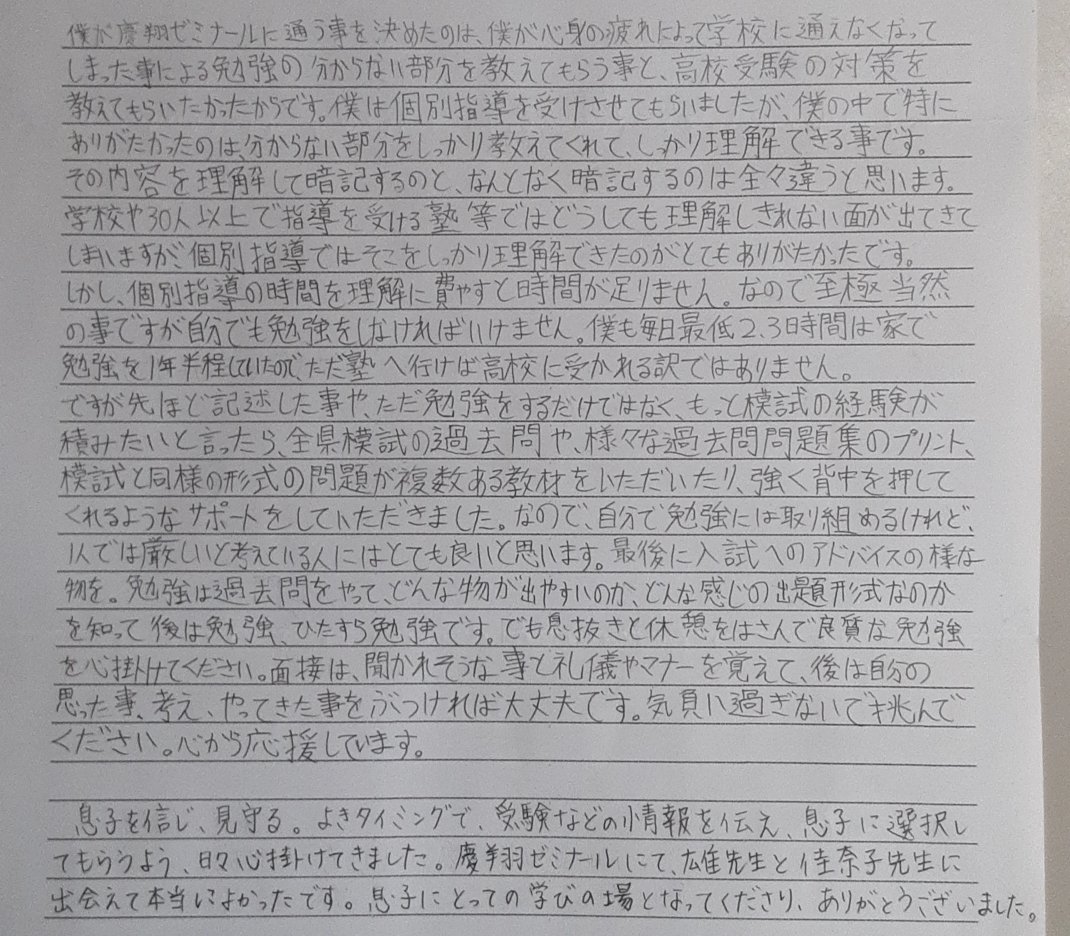 僕が慶翔ゼミナールに通う事を決めたのは、僕が心身の疲れによって学校に通えなくなって
しまった事による勉強の分からない部分を教えてもらう事と、高校受験の対策を
教えてもらいたかったからです。僕は個別指導を受けさせてもらいましたが、僕の中で特に
ありがたかったのは、分からない部分をしっかり教えてくれて、しっかり理解できる事です。
その内容を理解して暗記するのと、なんとなく暗記するのは全々違うと思います。
学校や30人以上で指導を受ける塾等ではどうしても理解しきれない面が出てきて
しまいますが、個別指導ではそこをしっかり理解できたのがとてもありがたかったです。
しかし、個別指導の時間を理解に費やすと時間が足りません。なので至極当然
の事ですが自分でも勉強をしなければいけません。僕も毎日最低2.3時間は家で
勉強を1年半程していたので、ただ塾へ行けば高校に受かれる訳ではありません。
ですが先ほど記述した事や、ただ勉強をするだけではなく、もっと模試の経験が
積みたいと言ったら、全県模試の過去問や、様々な過去問問題集のプリント、
模試と同様の形式の問題が複数ある教材をいただいたり、強く背中を押して
くれるようなサポートをしていただきました。なので、自分で勉強には取り組めるけれど、
1人では厳しいと考えている人にはとても良いと思います。最後に入試へのアドバイスの様な
物を。勉強は過去問をやって、どんな物が出やすいのか、どんな感じの出題形式なのか
を知って後は勉強、ひたすら勉強です。でも息抜きと休憩をはさんで良質な勉強
を心掛けてください。面接は、聞かれそうな事と礼儀やマナーを覚えて、後は自分の
思った事、考え、やってきた事をぶつければ大丈夫です。気負い過ぎないで挑んで
ください。心から応援しています。
息子を信じ、見守る。よきタイミングで、受験などの情報を伝え、息子に選択し
てもらうよう、日々心掛けてきました。慶翔ゼミナールにて、広雄先生と佳奈子先生に
出会えて本当によかったです。息子にとっての学びの場となってくださり、ありがとうございました。